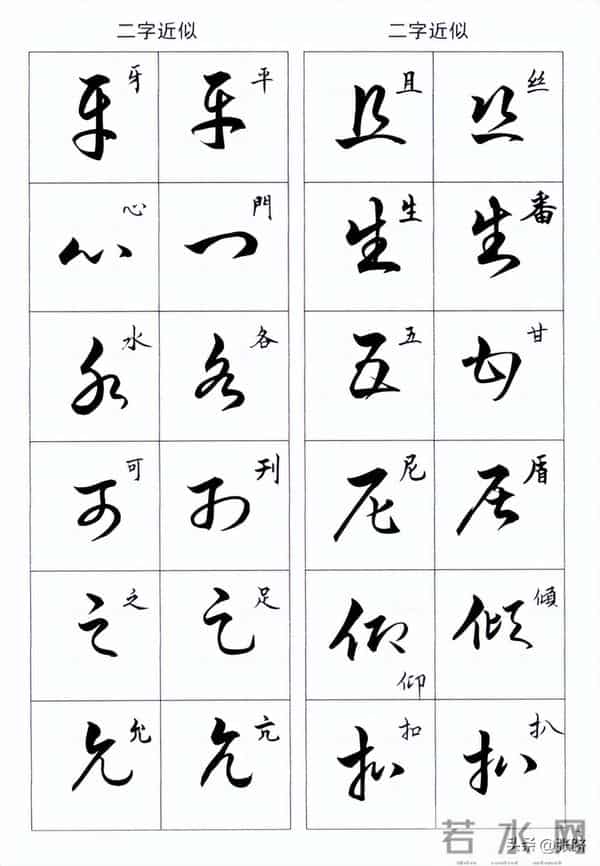 二字近似 二字近似
牙 平 且 丝
心 門 生 番
水 各 五 甘
可 刊 尼 盾
之 足 仰 傾
允 亢 扣 扒
若水网
头条@张晗